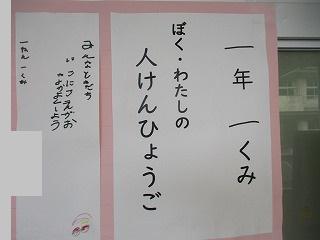 一年 一くみ
ぼく・わたしの
人けんひょうご
みんなともだち
いつもにこえがお
なかよくしよう
一ねん一くみ